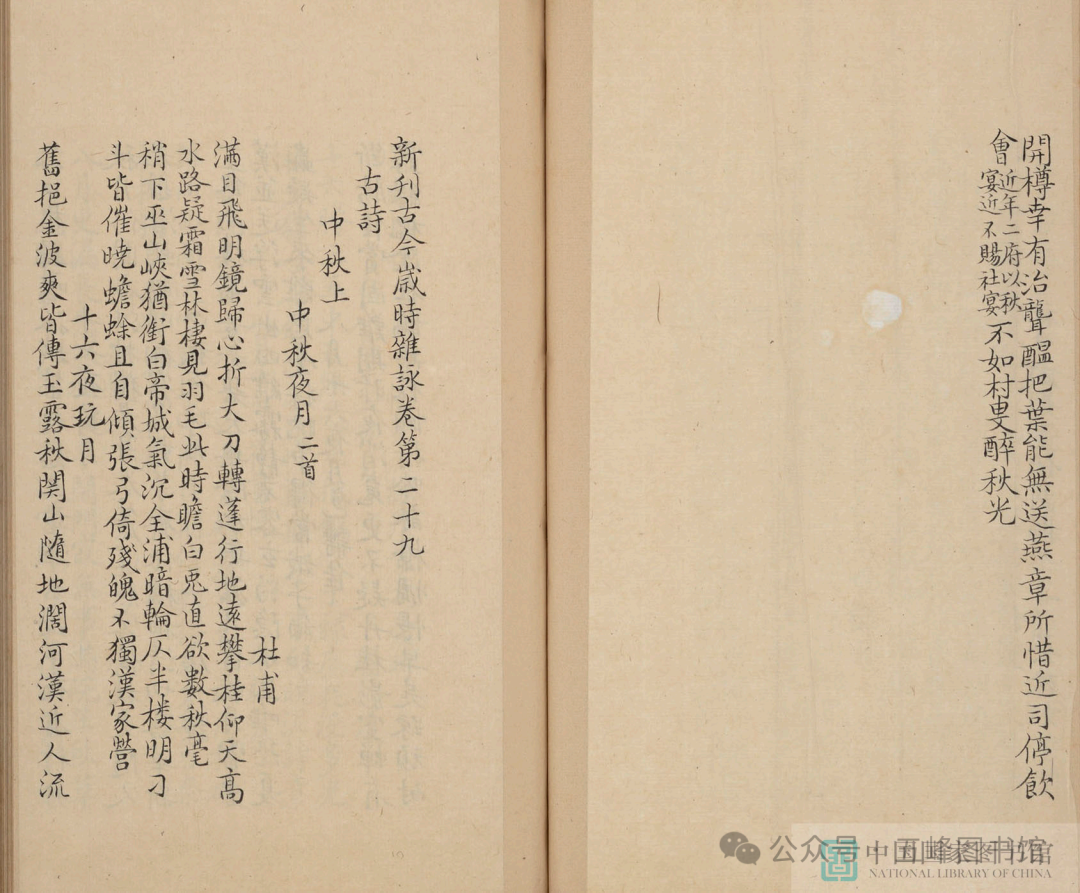 開樽幸有治聾醖把葉能無送燕章所惜近司停飲
會
近年二府以秋
宴近不賜社宴
不如村叟醉秋光
新刋古今嵗時雜詠卷第二十九
古詩
中秋上
中秋夜月二首
杜甫
滿目飛明鏡歸心折大刀轉蓬行地遠攀桂仰天髙
水路疑霜雪林棲見羽毛此時瞻白兎直欲數秋毫
稍下巫山峽猶銜白帝城氣沉全浦暗輪仄半楼明刁
斗皆催曉蟾蜍且自傾張弓倚殘魄不獨漢家營
十六夜玩月
舊挹金波爽皆傳玉露秋関山隨地濶河漢近人流
公众号
NATIONAL LIBRARY OF CHINA